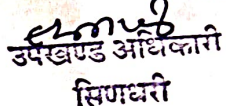 उपखण्ड अधिकारी
सिणधरी